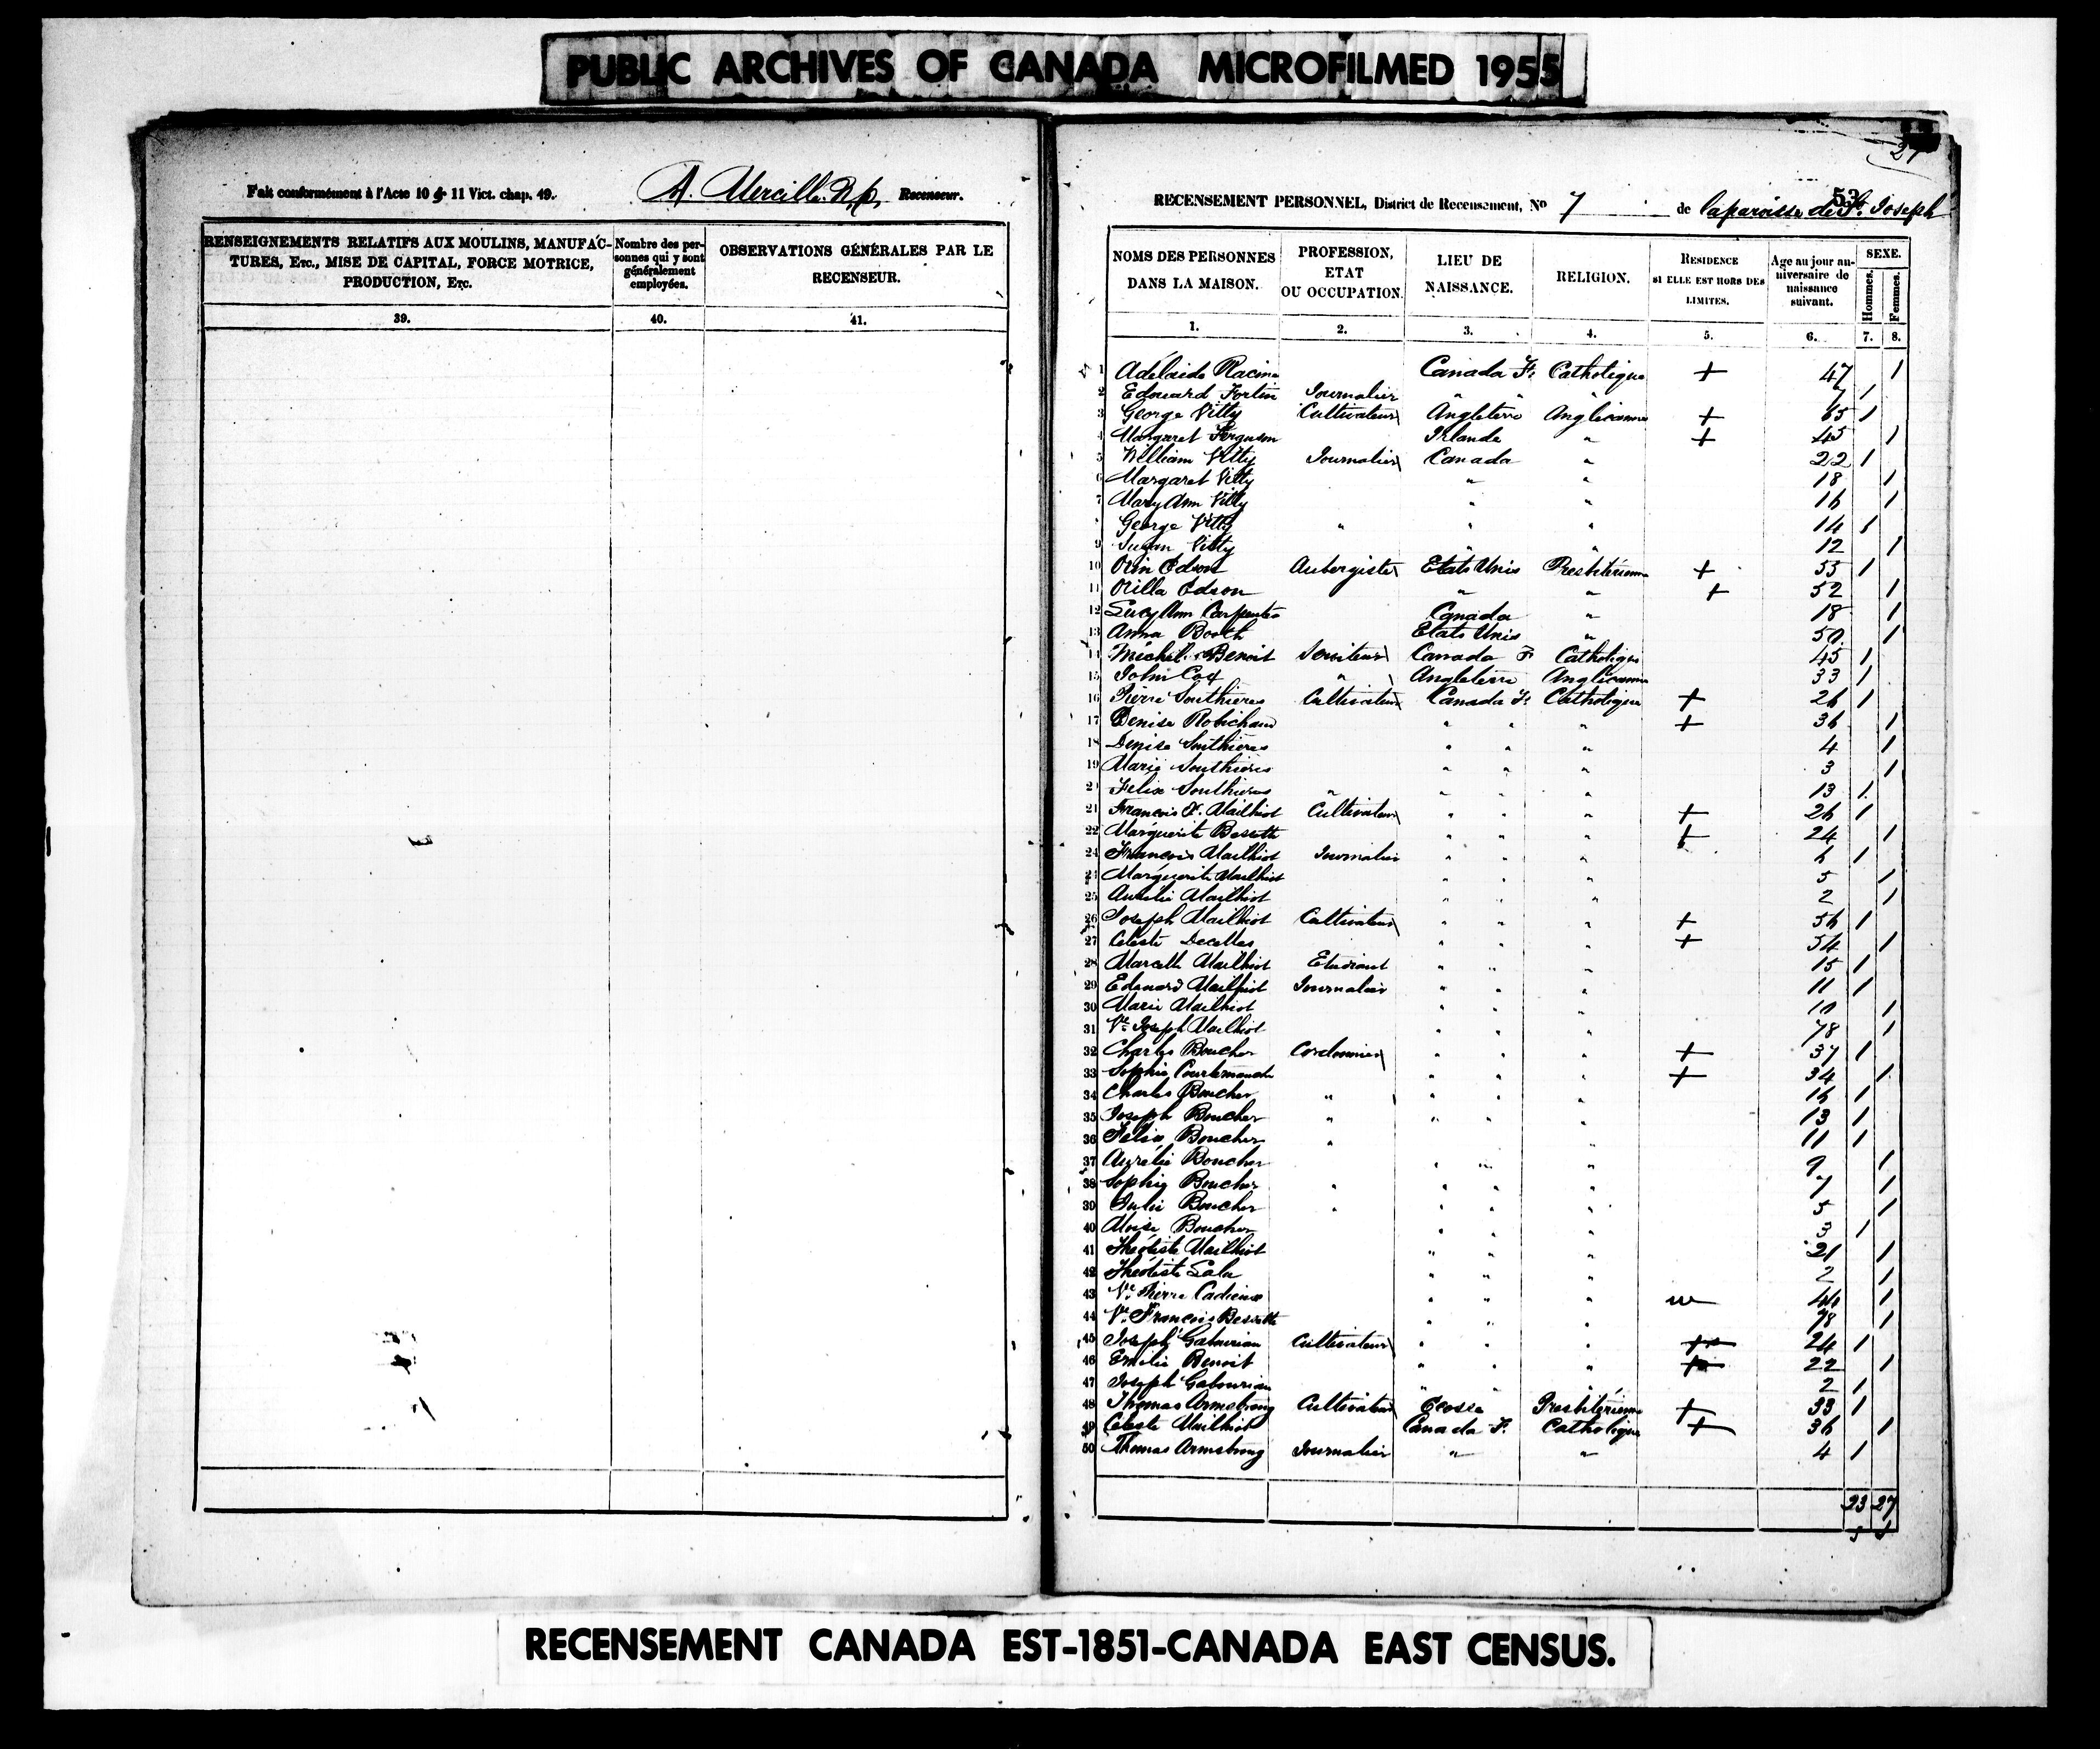 PUBLIC ARCHIVES OF CANADA MICROFILMED 1955
Fait conformément à l'Acte 10 & 11 Vict. chap. 49. A. Mercille Recenseur.
RENSEIGNEMENTS RELATIFS AUX MOULINS, MANUFAC-
TURES, Etc., MISE DE CAPITAL, FORCE MOTRICE,
PRODUCTION, Etc.
Nombre des per-
sonnes qui y sont
généralement
employées.
OBSERVATIONS GÉNÉRALES PAR LE
RECENSEUR.
39. 40. 41.
27
53
RECENSEMENT PERSONNEL, District de Recensement, No 7 de la paroisse de St. Joseph
NOMS DES PERSONNES
DANS LA MAISON.
PROFESSION,
ETAT
OU OCCUPATION.
LIEU DE
NAISSANCE.
RELIGION.
RESIDENCE
SI ELLE EST HORS DES
LIMITES.
Age au jour an-
niversaire de
naissance
suivant.
SEXE.
Hommes.
Femmes.
1. 2. 3. 4. 5. 6. 7. 8.
1 Adelaide Racine Canada F. Catholique + 47 1
2 Edouard Fortin Journalier " " " 7 1
3 George Vitty Cultivateur Angleterre Anglicanne + 65 1
4 Margaret Ferguson Irlande " + 45 1
5 William Vitty Journalier Canada " 22 1
6 Margaret Vitty " " 18 1
7 Mary Ann Vitty " " 16 1
George Vitty " " " 14 1
9 Susan Vitty " " 12 1
10 Orin Edson Aubergiste Etats Unis Presbiterienne + 53 1
11 Rilla Edson " " + 52 1
12 Lucy Ann Carpenter Canada " 18 1
13 Anna Booth Etats Unis " 50 1
14 Michel Benoit Serviteur Canada F. Catholique 45 1
15 John Cox " Angleterre Anglicanne 33 1
16 Pierre Southieres Cultivateur Canada F. Catholique + 26 1
17 Denise Robichaud " " " + 36 1
18 Denise Southieres " " " 4 1
19 Marie Southieres " " " 3 1
2 Felix Southieres " " " " 13 1
21 Francois X. Mailhiot Cultivateur " " " + 26 1
22 Marguerite Bessette " " " + 24 1
24 Francois Mailhiot Journalier " " " 6 1
24 Marguerite Mailhiot " " " 5 1
25 Aurelie Mailhiot " " " 2 1
26 Joseph Mailhiot Cultivateur " " " + 56 1
27 Celeste Decelles " " " + 54 1
28 Marcelle Mailhiot Etudiant " " " 15 1
29 Edouard Mailhiot Journalier " " " 11 1
30 Marie Mailhiot " " " 10 1
31 Ve. Joseph Mailhiot " " " 78 1
32 Charles Boucher Cordonnier " " " + 37 1
33 Sophie Courtemanche " " " + 34 1
34 Charles Boucher " " " " 16 1
35 Joseph Boucher " " " " 13 1
36 Felix Boucher " " 11 1
37 Aurelie Boucher " " " 9 1
38 Sophie Boucher " " " " 7 1
39 Julie Boucher " " " " 5 1
40 Moise Boucher " " " 3 1
41 Théotiste Mailhiot " " " 21 1
42 Théotiste Lalu " " " 2 1
43 Ve. Pierre Cadieux " " " 1
44 Ve. Francois Bessette " " " 78 1
45 Joseph Gabourian Cultivateur " " " 24 1
46 Emelie Benoit " " " 22 1
47 Joseph Gabourian " " " 2 1
48 Thomas Armstrong Cultivateur Ecosse Presbiterienne + 33 1
49 Celeste Mailhiot Canada F. Catholique + 36 1
50 Thomas Armstrong Journalier " " 4 1
23 27
RECENSEMENT CANADA EST-1851-CANADA EAST CENSUS.